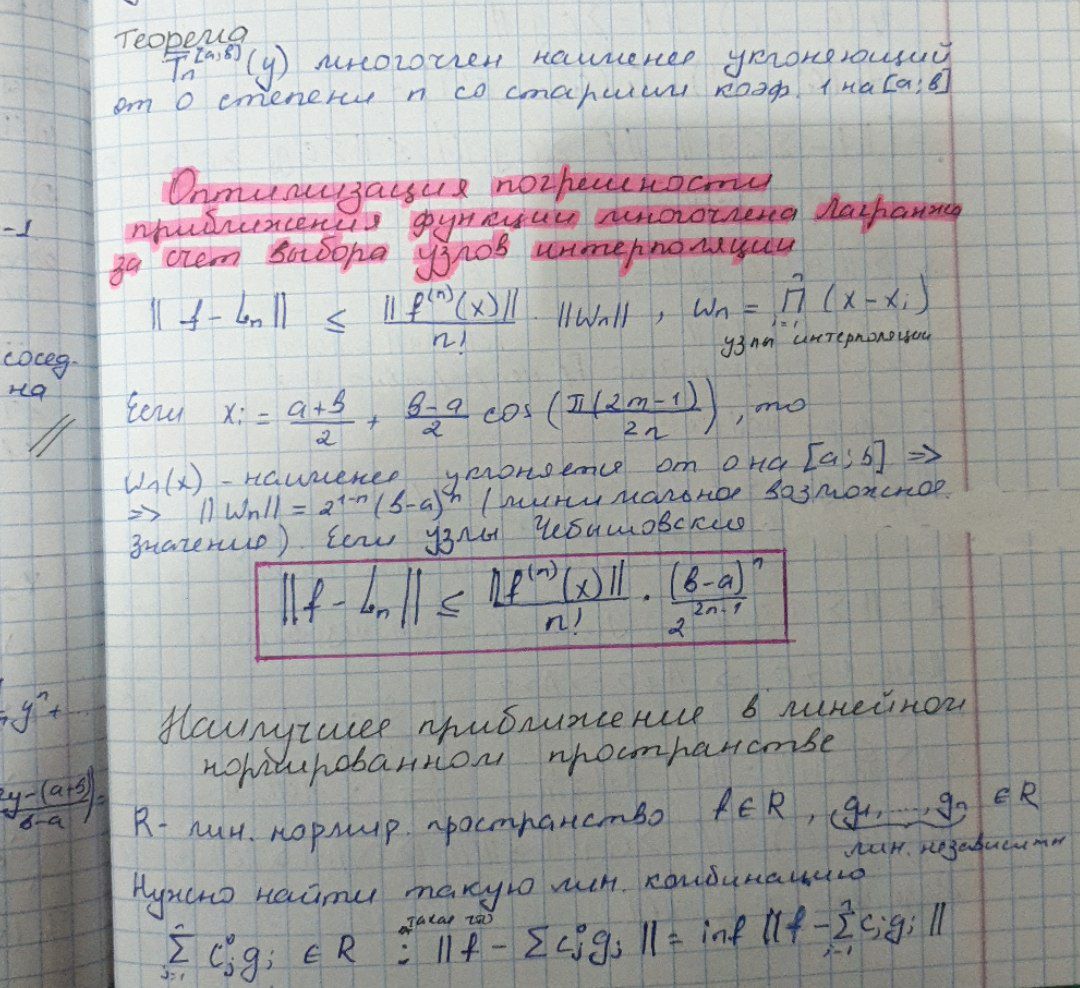 Теорема
T̅ₙ^[a;b](y) многочлен наименее уклоняющий
от 0 степени n со старшим коэф. 1 на [a;b]
Оптимизация погрешности
приближения функции многочлена Лагранжа
за счет выбора узлов интерполяции
||f - Lₙ|| ≤ ||f⁽ⁿ⁾(x)||/n! · ||Wₙ||, Wₙ = ∏ᵢ₌₁ⁿ (x - xᵢ)
узлы интерполяции
Если xᵢ = (a+b)/2 + (b-a)/2 cos(π(2m-1)/2n), то
Wₙ(x) - наименее уклоняется от 0 на [a;b] =>
=> ||Wₙ|| = 2¹⁻ⁿ(b-a)ⁿ (минимальное возможное
значение). Если узлы Чебышовские
||f - Lₙ|| ≤ ||f⁽ⁿ⁾(x)||/n! · (b-a)ⁿ/2²ⁿ⁻¹
Наилучшее приближение в линейном
нормированном пространстве
R - лин. нормир. пространство f ∈ R, g₁, ..., gₙ ∈ R
лин. независимы
Нужно найти такую лин. комбинацию
∑ⱼ₌₁ⁿ Cⱼ⁰gⱼ ∈ R : такая что ||f - ∑Cⱼ⁰gⱼ|| = inf ||f - ∑ⱼ₌₁ⁿ Cⱼgⱼ||
-1
сосед-
на
yⁿ+...
2y-(a+b)/b-a =